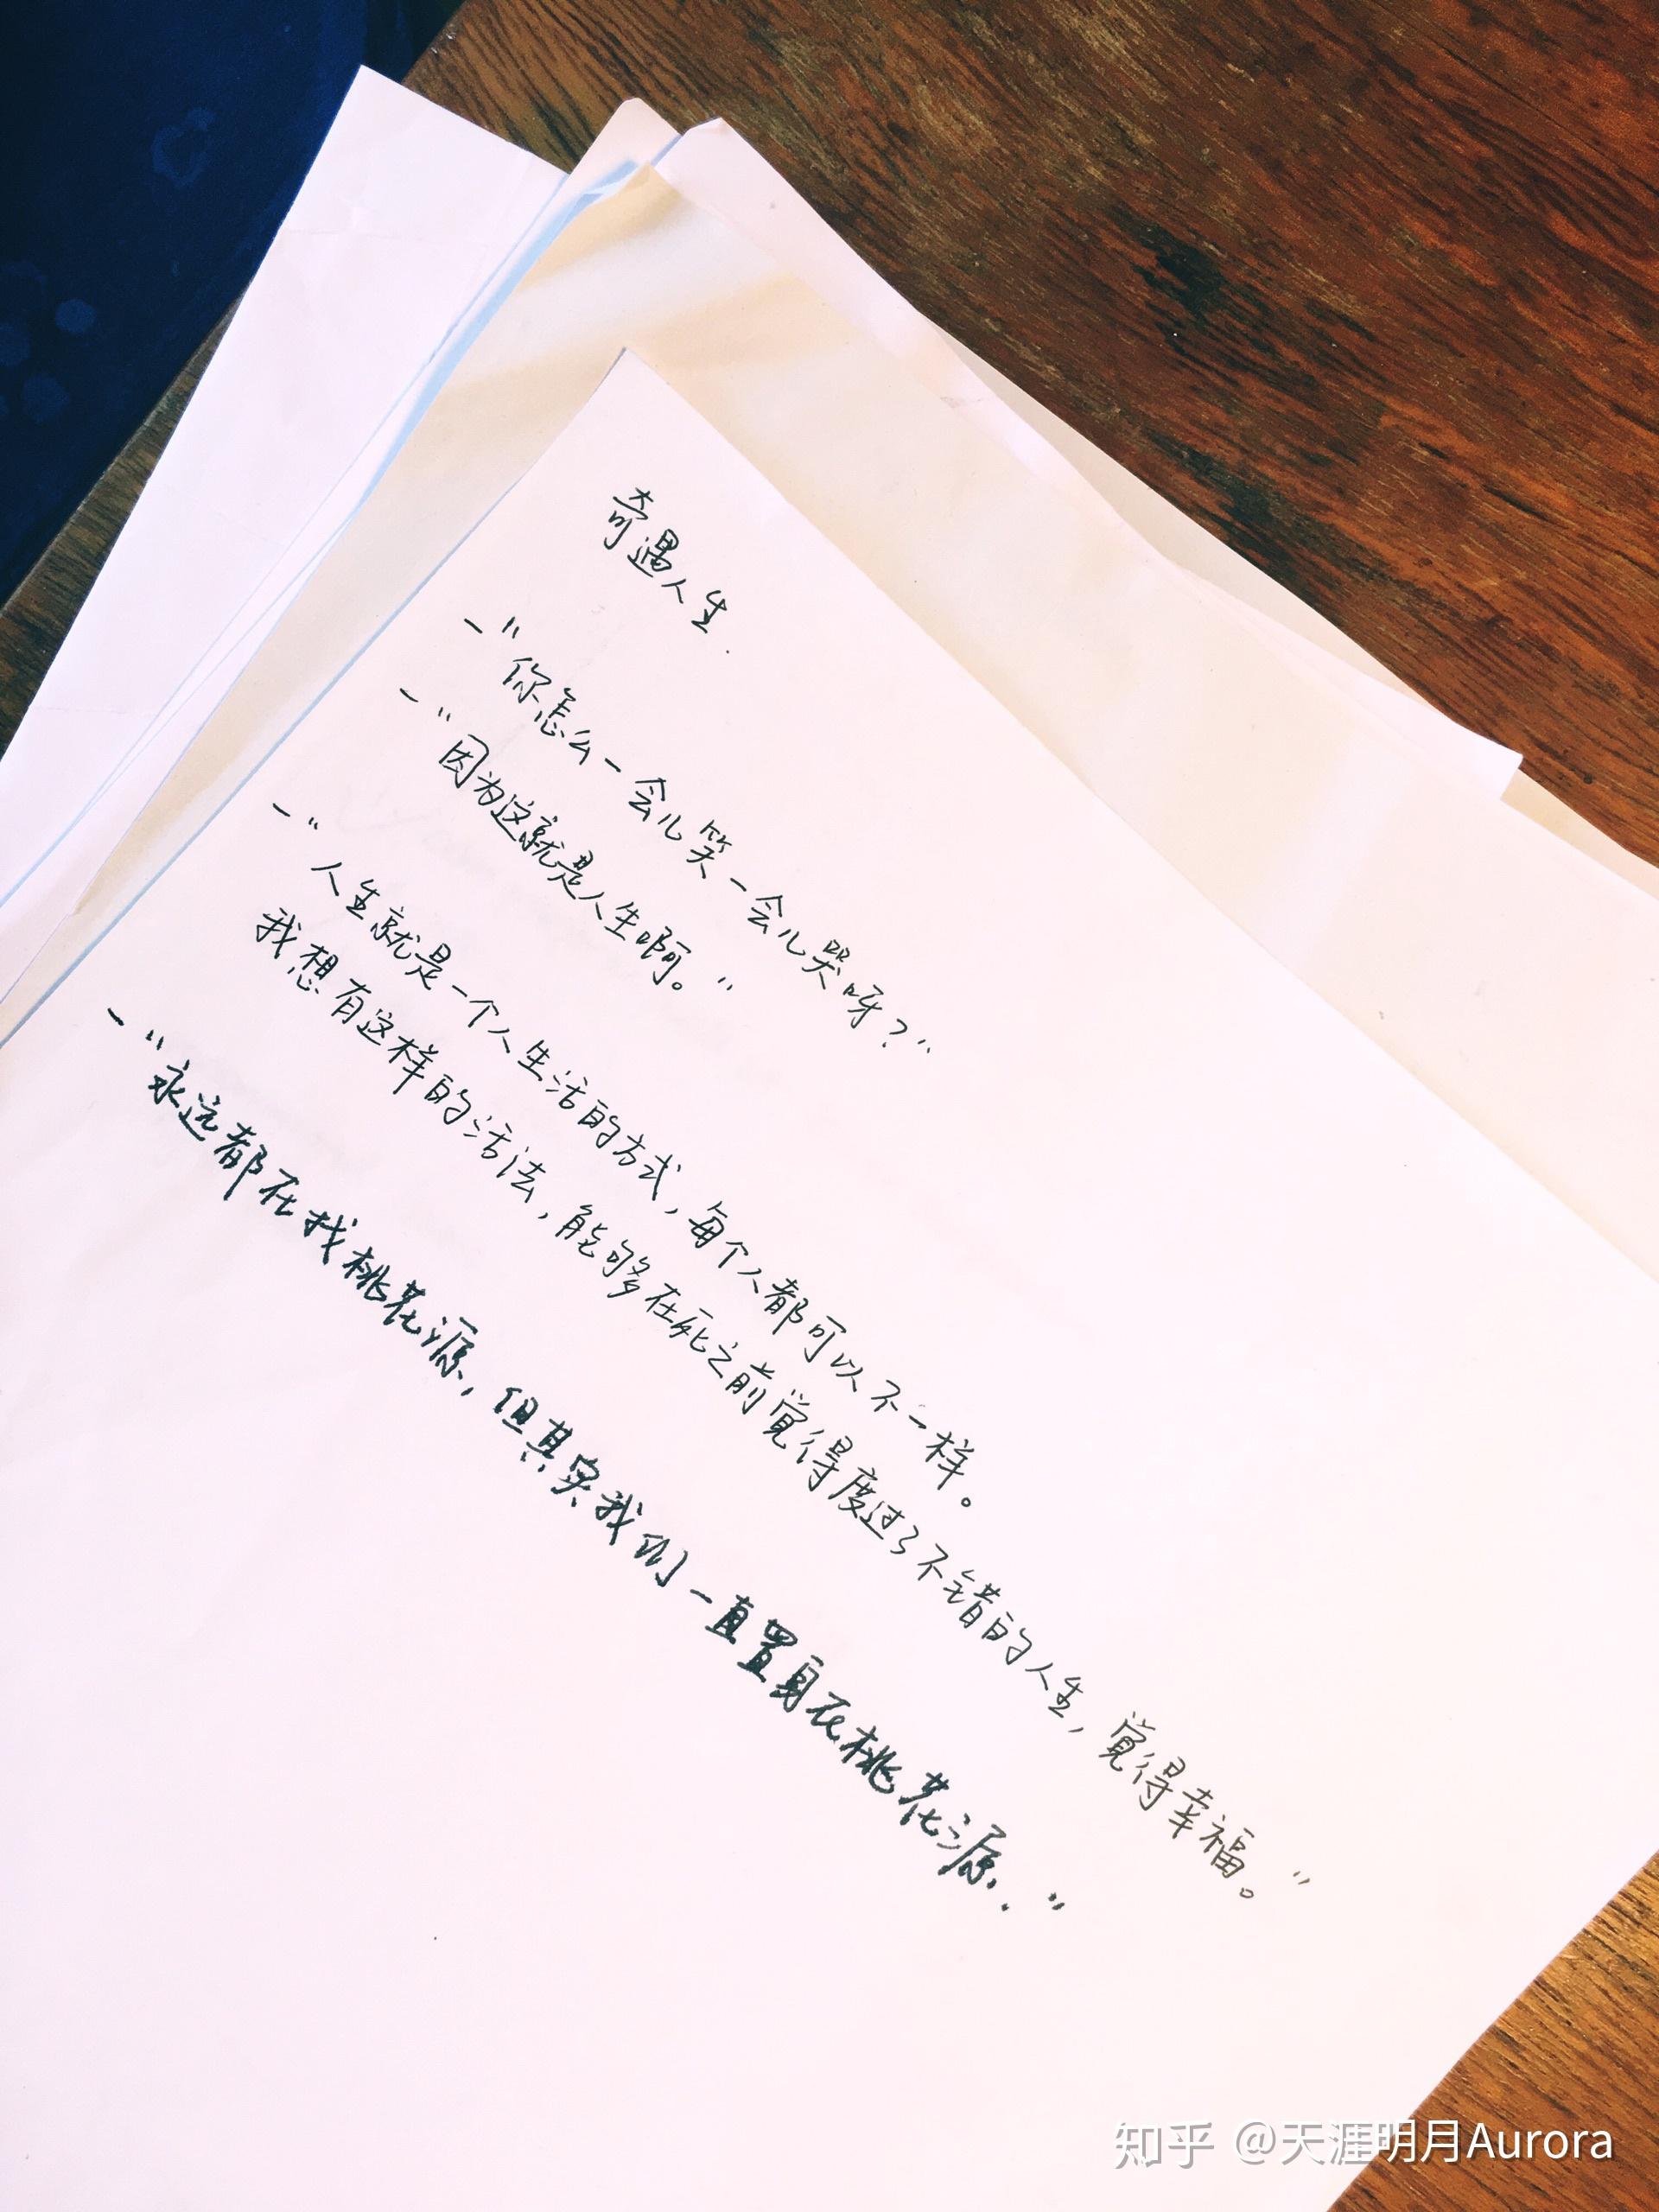 奇遇人生.
-“你怎么一会儿笑一会儿哭呀？”
-“因为这就是人生啊。”
-“人生就是一个人生活的方式，每个人都可以不一样。
我想有这样的活法，能够在死之前觉得度过了不错的人生，觉得幸福。”
-“永远都在找桃花源，但其实我们一直置身在桃花源.”
知乎 @天涯明月Aurora